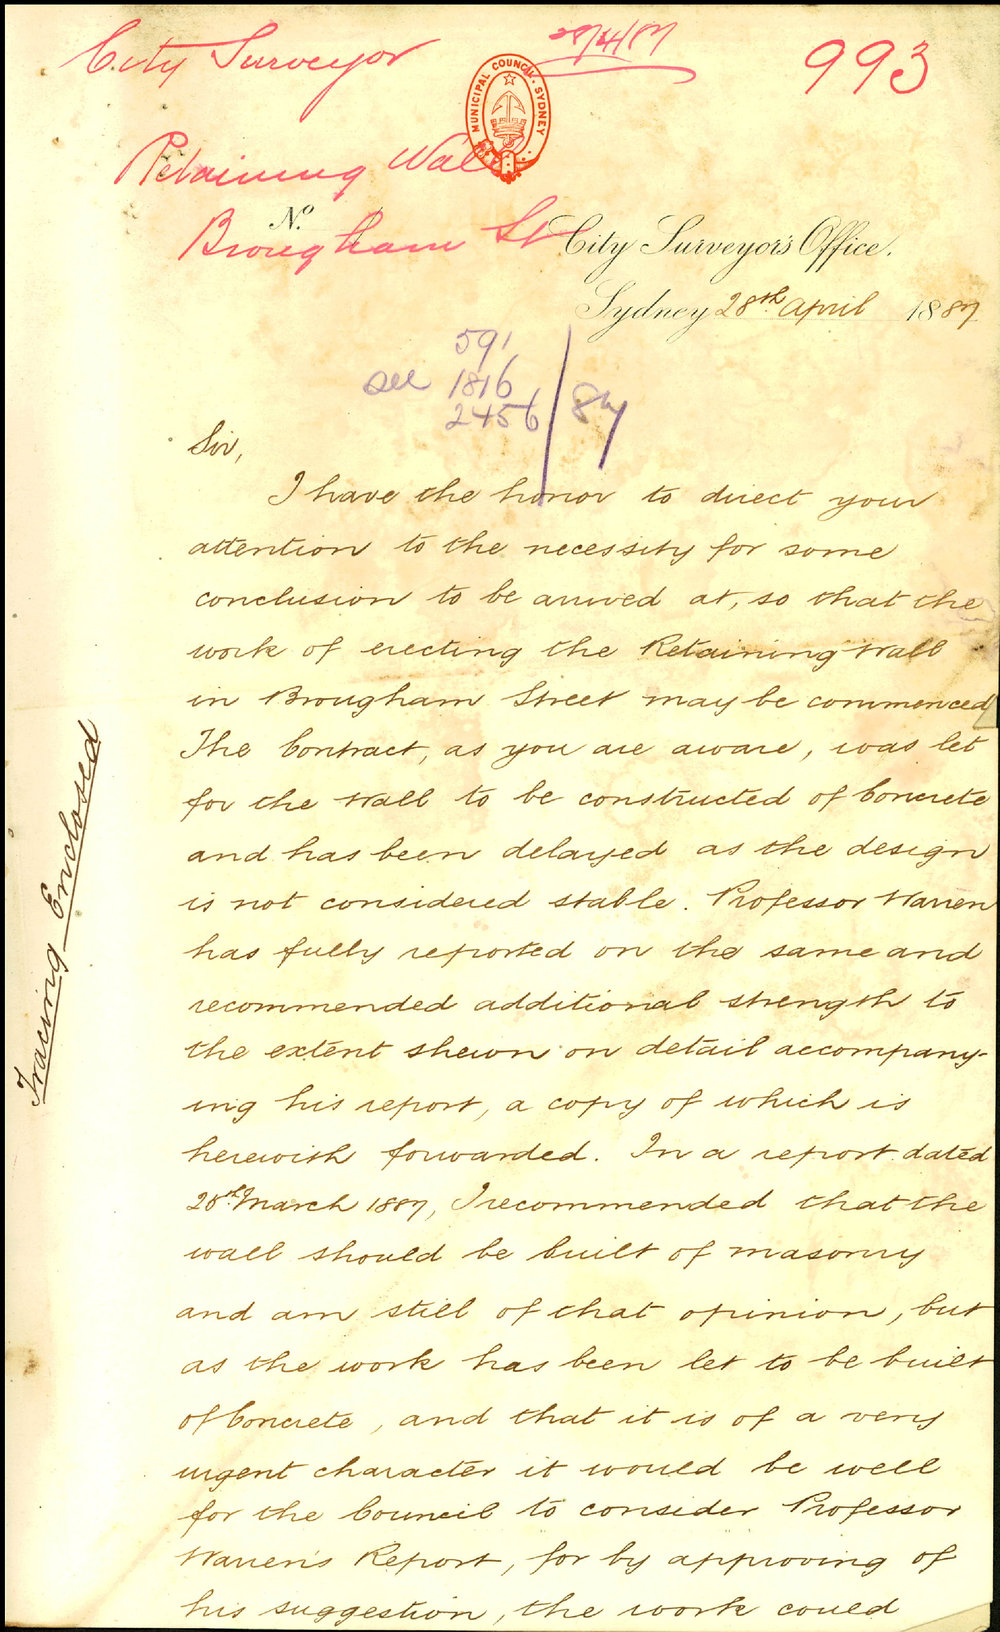 City Surveyor
28/4/87
993
MUNICIPAL COUNCIL. SYDNEY
Retaining Wall
No.
Brougham St
City Surveyor's Office.
Sydney 28th April 1887
591
see 1816
2456 / 87
Sir,
I have the honor to direct your
attention to the necessity for some
conclusion to be arrived at, so that the
work of erecting the Retaining Wall
in Brougham Street may be commenced
The Contract, as you are aware, was let
for the Wall to be constructed of Concrete
and has been delayed as the design
is not considered stable. Professor Warren
has fully reported on the same and
recommended additional strength to
the extent shewn on detail accompany-
ing his report, a copy of which is
herewith forwarded. In a report dated
28th March 1887, I recommended that the
wall should be built of masonry
and am still of that opinion, but
as the work has been let to be built
of Concrete, and that it is of a very
urgent character it would be well
for the Council to consider Professor
Warren's Report, for by approving of
his suggestion, the work could
Tracing Enclosed